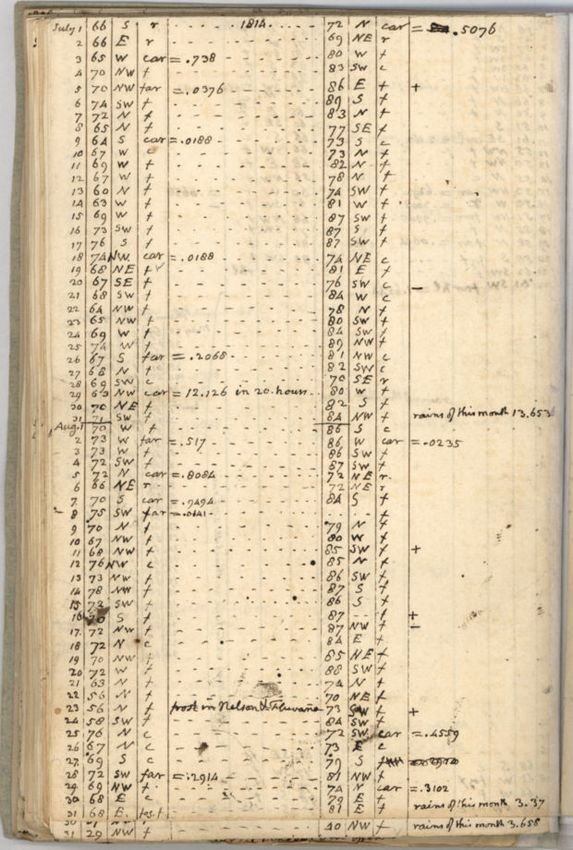 1814.
July 1 66 S r 72 N car = .5076
2 66 E r 69 NE r
3 65 W car = .738 80 W f
4 70 NW f 83 SW c
5 70 NW far = .0376 86 E f +
6 74 SW f 89 S f
7 72 N f 83 N f
8 65 N f 77 SE f
9 64 S car = .0188 73 S c
10 67 W c 73 N f
11 69 W f 82 N f
12 67 W f 78 N f
13 60 N f 74 SW f
14 63 W f 81 W f
15 69 W f 87 SW f
16 73 SW f 87 S f
17 76 S f 87 SW f
18 74 NW. car = .0188 74 NE c
19 68 NE f 81 E f
20 67 SE f 76 SW c -
21 68 SW f 84 W c
22 64 NW f 78 N f
23 65 NW f 80 SW f
24 69 W f 84 SW f
25 74 W f 89 NW f
26 67 S far = .2068 81 NW c
27 68 N f 82 SW c
28 69 SW c 70 SE r
29 63 NW car = 12.126 in 20. hours 80 W f
30 70 NE f 82 S f
31 71 SW f 84 NW f rains of this month 13.653
Aug. 1 70 W f 86 S c
2 73 W far = .517 86 W car = .0235
3 73 W f 86 SW f
4 72 SW f 87 SW f
5 72 N car = .8084 72 NE r
6 66 NE r 72 NE r
7 70 S car = .9494 84 S f
8 75 SW far = .0141 f
9 70 N f 79 N f
10 67 NW f 80 W f
11 68 NW f 85 SW f +
12 76 NW c 85 N f
13 73 NW f 86 SW f
14 78 NW f 87 S f
15 73 SW f 86 S f
16 S f 87 f +
17. 72 NW f 87 NW f -
18 72 N c 84 E f
19 70 NW f 85 NE f
20 72 W f 88 SW f
21 63 N f 74 N f
22 56 N f 70 NE f
23 56 N f frost in Nelson & Fluvanna 73 SW f +
24 58 SW f 84 SW f
25 76 N c 72 SW. car = .4559
26 67 N c 73 E c
27. 69 S c 79 S f
28 72 SW far = .2914 81 NW f
29 69 NW f 74 N car = .3102
30 68 E c 79 E f rains of this month 3.37
31 68 E. 81 E f
31 29 NW f 40 NW f rains of this month 3.658